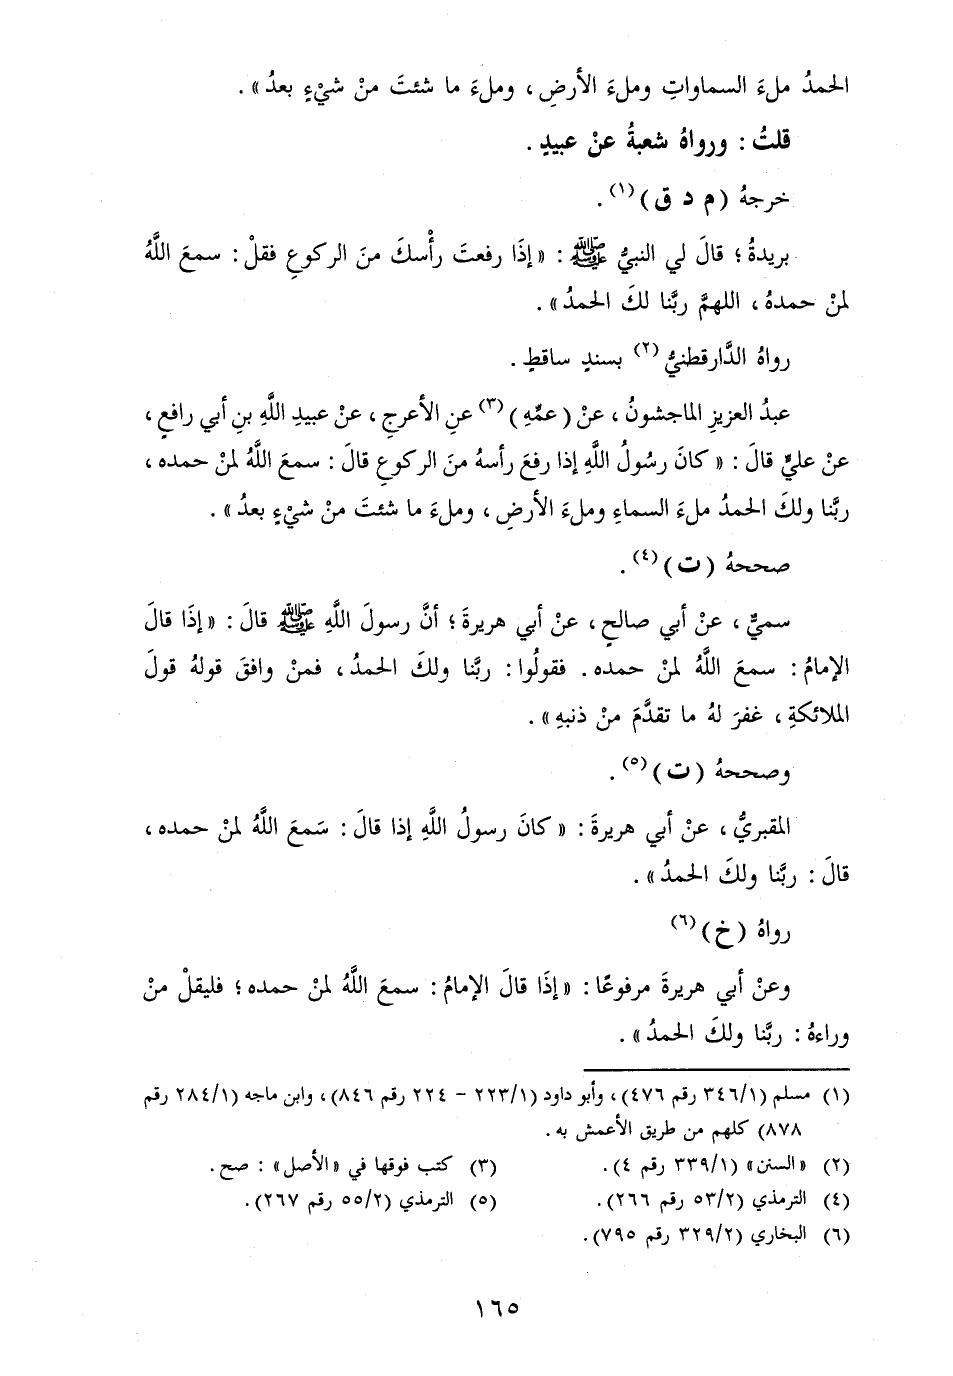 الحمدُ ملءَ السماواتِ وملءَ الأرضِ، وملءَ ما شئتَ منْ شيْءٍ بعدُ».
قلتُ: ورواهُ شعبةُ عنْ عبيدٍ.
خرجهُ (م د ق)(١).
بريدةُ؛ قالَ لي النبيُّ ﷺ: «إذَا رفعتَ رأْسكَ منَ الركوعِ فقلْ: سمعَ اللَّهُ
لمنْ حمدهُ، اللهمَّ ربَّنا لكَ الحمدُ».
رواهُ الدَّارقطنيُّ(٢) بسندٍ ساقطٍ.
عبدُ العزيزِ الماجشونُ، عنْ (عمِّهِ)(٣) عنِ الأعرجِ، عنْ عبيدِ اللَّهِ بنِ أبي رافعٍ،
عنْ عليٍّ قالَ: «كانَ رسُولُ اللَّهِ إذا رفعَ رأسهُ منَ الركوعِ قالَ: سمعَ اللَّهُ لمنْ حمده،
ربَّنا ولكَ الحمدُ ملءَ السماءِ وملءَ الأرضِ، وملءَ ما شئتَ منْ شيْءٍ بعدُ».
صححهُ (ت)(٤).
سميٌّ، عنْ أبي صالحٍ، عنْ أبي هريرةَ؛ أنَّ رسولَ اللَّهِ ﷺ قالَ: «إذَا قالَ
الإمامُ: سمعَ اللَّهُ لمنْ حمده. فقولُوا: ربَّنا ولكَ الحمدُ، فمنْ وافقَ قولهُ قولَ
الملائكةِ، غفرَ لهُ ما تقدَّمَ منْ ذنبهِ».
وصححهُ (ت)(٥).
المقبريُّ، عنْ أبي هريرةَ: «كانَ رسولُ اللَّهِ إذا قالَ: سَمعَ اللَّهُ لمنْ حمده،
قالَ: ربَّنا ولكَ الحمدُ».
رواهُ (خ)(٦)
وعنْ أبي هريرةَ مرفوعًا: «إذَا قالَ الإمامُ: سمعَ اللَّهُ لمنْ حمده؛ فليقلْ منْ
وراءهُ: ربَّنا ولكَ الحمدُ».
(١) مسلم (٣٤٦/١ رقم ٤٧٦)، وأبو داود (٢٢٣/١ - ٢٢٤ رقم ٨٤٦)، وابن ماجه (٢٨٤/١ رقم
٨٧٨) كلهم من طريق الأعمش به.
(٢) «السنن» (٣٣٩/١ رقم ٤). (٣) كتب فوقها في «الأصل»: صح.
(٤) الترمذي (٥٣/٢ رقم ٢٦٦). (٥) الترمذي (٥٥/٢ رقم ٢٦٧).
(٦) البخاري (٣٢٩/٢ رقم ٧٩٥).
١٦٥